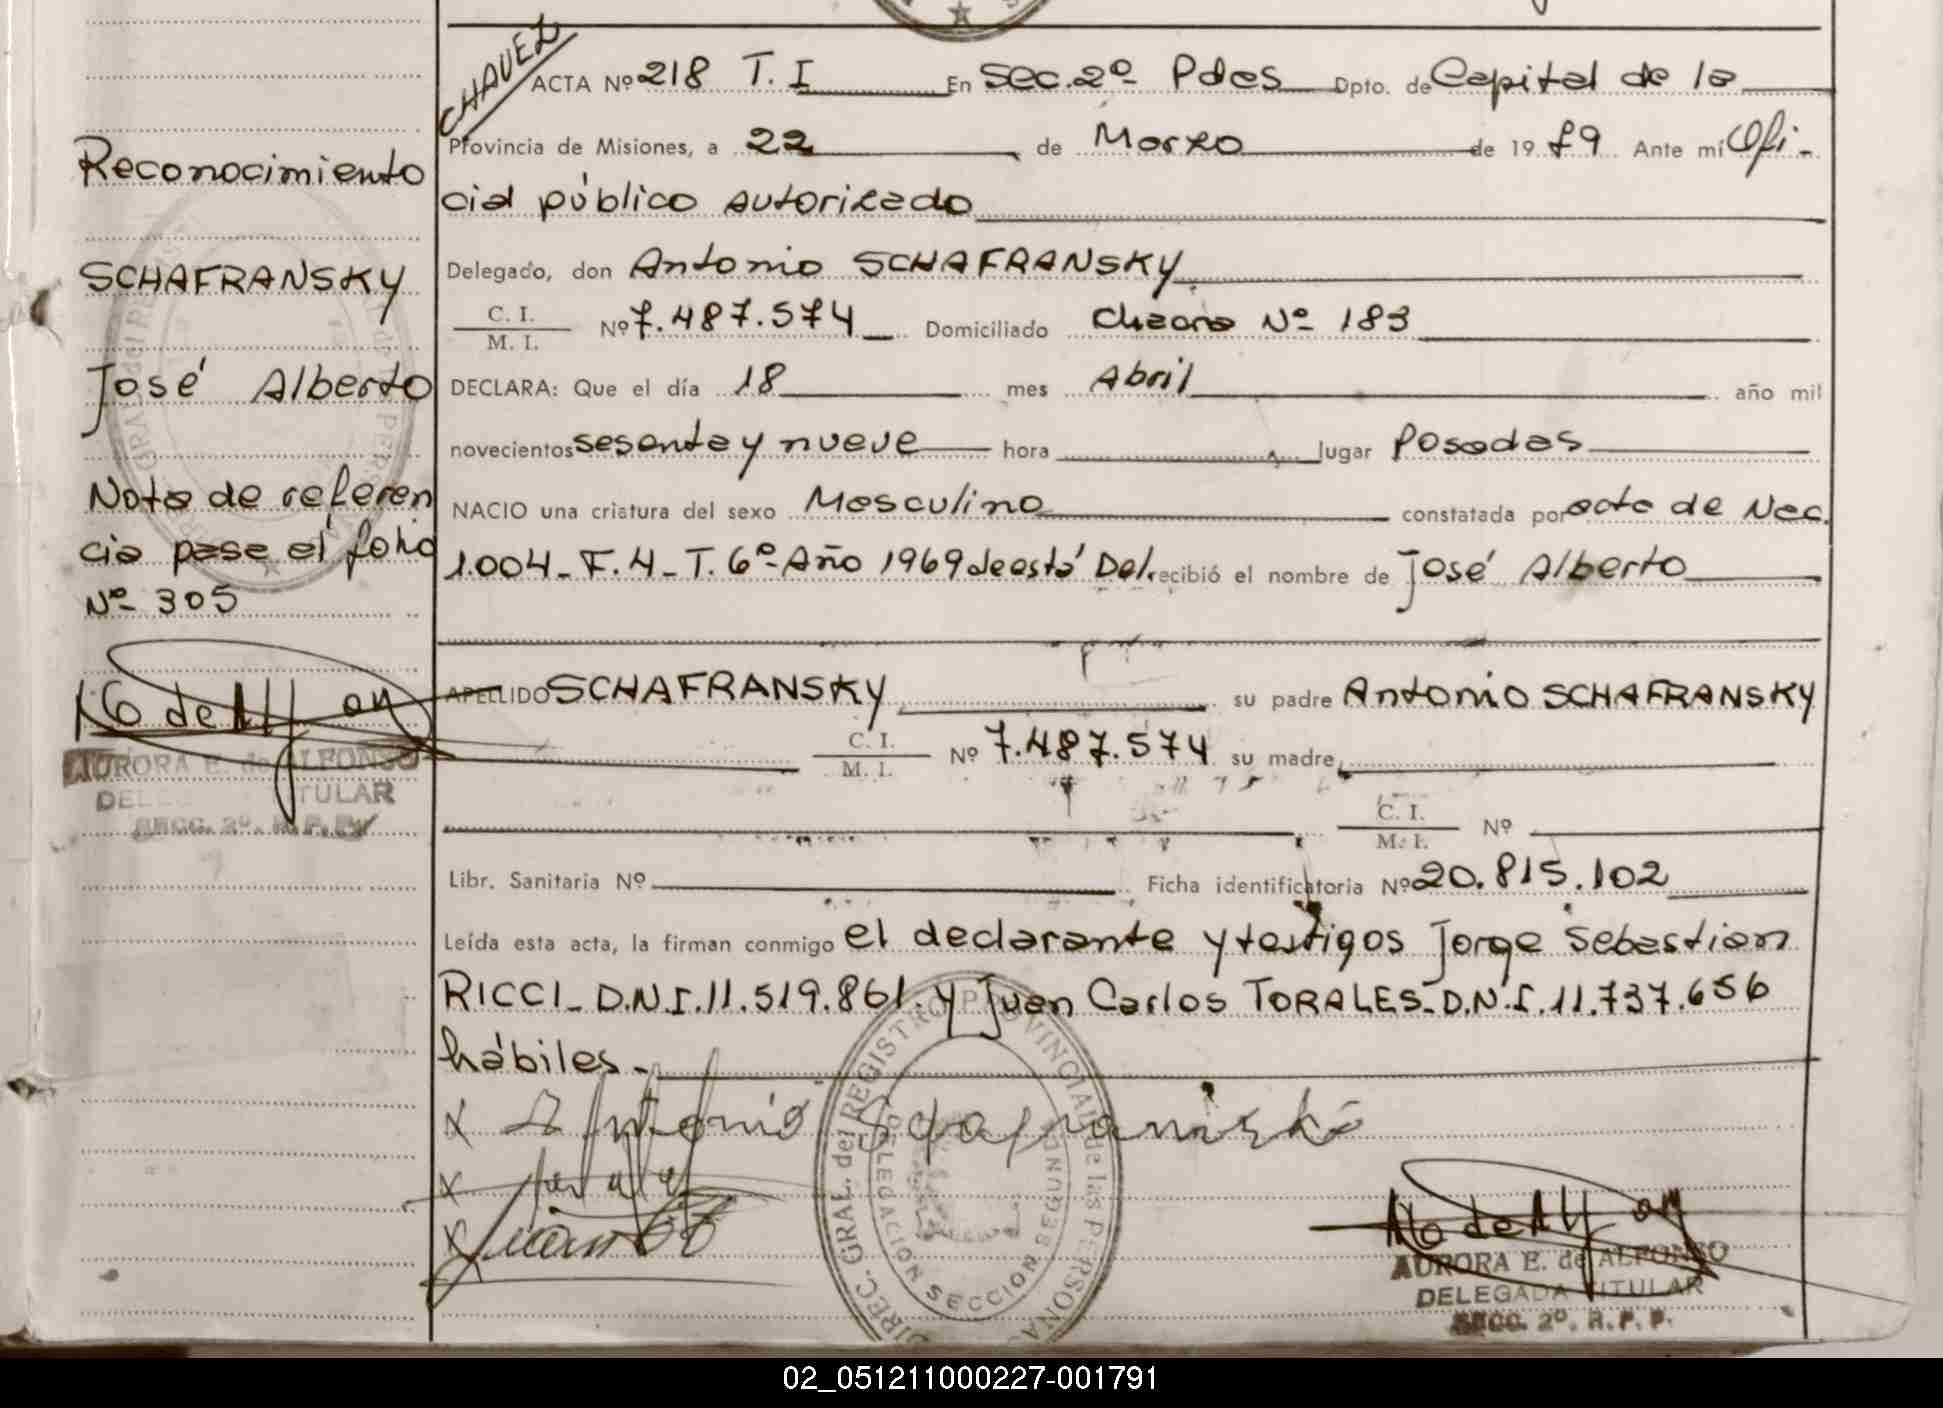 CHAVEZ
ACTA Nº 218 T. I En Sec. 2º Pdas Dpto. de Capital de la
Provincia de Misiones, a 22 de Marzo de 19 79 Ante mí Ofi-
cial público autorizado
Delegado, don Antonio SCHAFRANSKY
C. I.
M. I.
Nº 7.487.574 Domiciliado Chacra Nº 183
DECLARA: Que el día 18 mes Abril año mil
novecientos sesenta y nueve hora lugar Posadas
NACIO una criatura del sexo Masculino constatada por acta de Nac.
1.004_ F. 4_ T. 6º_ Año 1969 de está Del. recibió el nombre de José Alberto
APELLIDO SCHAFRANSKY su padre Antonio SCHAFRANSKY
C. I.
M. I.
Nº 7.487.574 su madre
C. I.
M. I.
Nº
Libr. Sanitaria Nº Ficha identificatoria Nº 20.815.102
Leída esta acta, la firman conmigo el declarante y testigos Jorge Sebastian
RICCI_ D.N.I. 11.519.861. y Juan Carlos TORALES_ D.N.I. 11.737.656
hábiles._
X Antonio
X
X Juan
DIREC. GRAL. del REGISTRO PROVINCIAL de las PERSONAS
DELEGACION SECCION SEGUNDA
AURORA E. de ALFONSO
DELEGADA TITULAR
SECC. 2º. R. P. P.
Reconocimiento
SCHAFRANSKY
José Alberto
Nota de referen
cia pasa al folio
Nº 305
AURORA E. de ALFONSO
DELEGADA TITULAR
SECC. 2º. R. P. P.
02_051211000227-001791